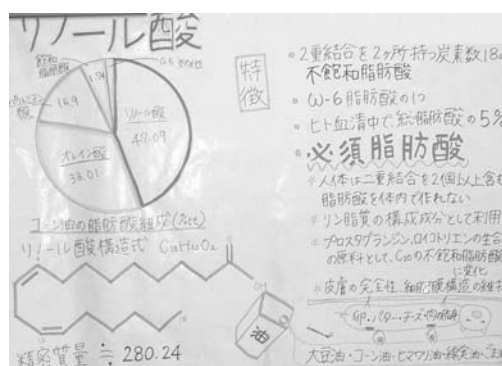 リノール酸
飽和
脂肪酸
その他
リノール酸
47.09
オレイン酸
33.01
コーン油の脂肪酸組成(%)
リノール酸構造式
OH
精密質量 ≒ 280.24
特徴
・2重結合を2ヶ所持つ炭素数18の
不飽和脂肪酸
・ω-6脂肪酸の1つ
・ヒト血清中で総脂肪酸の5%
・必須脂肪酸
*人体は二重結合を2個以上含む
脂肪酸を体内で作れない
*リン脂質の構成成分として利用
*プロスタグランジン、ロイコトリエンの生合
の原料として、C20の不飽和脂肪酸
に変化
*皮膚の完全性 細胞膜構造の維持
卵・バター・チーズ・肉の脂身
油
大豆油・コーン油・ヒマワリ油・綿実油・ごま